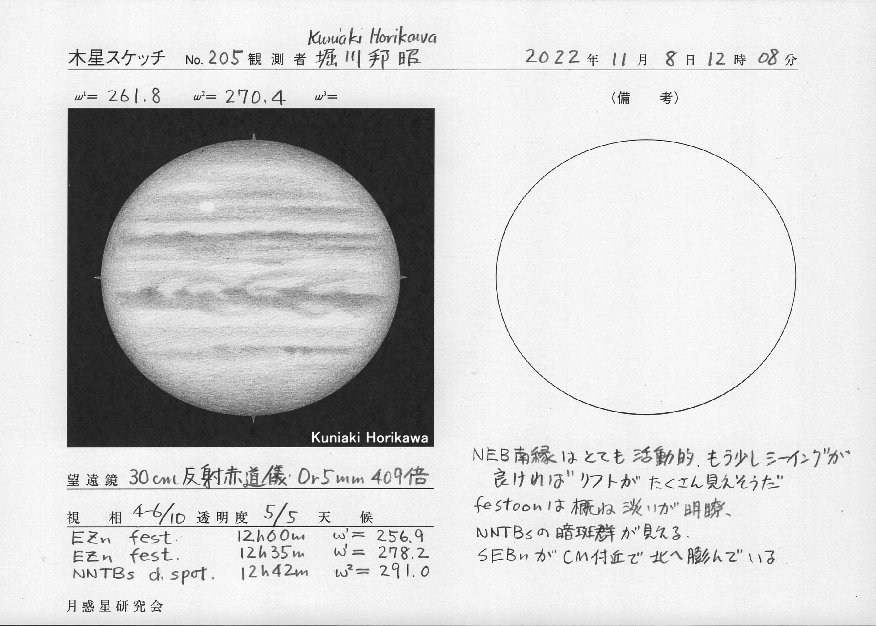 Kuniaki Horikawa
木星スケッチ No. 205 観測者 堀川邦昭 2022年 11月 8日 12時 08分
ω¹= 261.8 ω²= 270.4 ω³=
(備 考)
Kuniaki Horikawa
望遠鏡 30cm 反射赤道儀 Or5mm 409倍
視 相 4-6/10 透明度 5/5 天 候
EZn fest. 12h00m ω¹= 256.9
EZn fest. 12h35m ω¹= 278.2
NNTBs d. spot. 12h42m ω²= 291.0
月惑星研究会
NEB南縁はとても活動的.もう少しシーイングが
良ければリフトがたくさん見えそうだ
festoonは概ね淡いが明瞭、
NNTBsの暗斑群が見える.
SEBnがCM付近で北へ膨んでいる